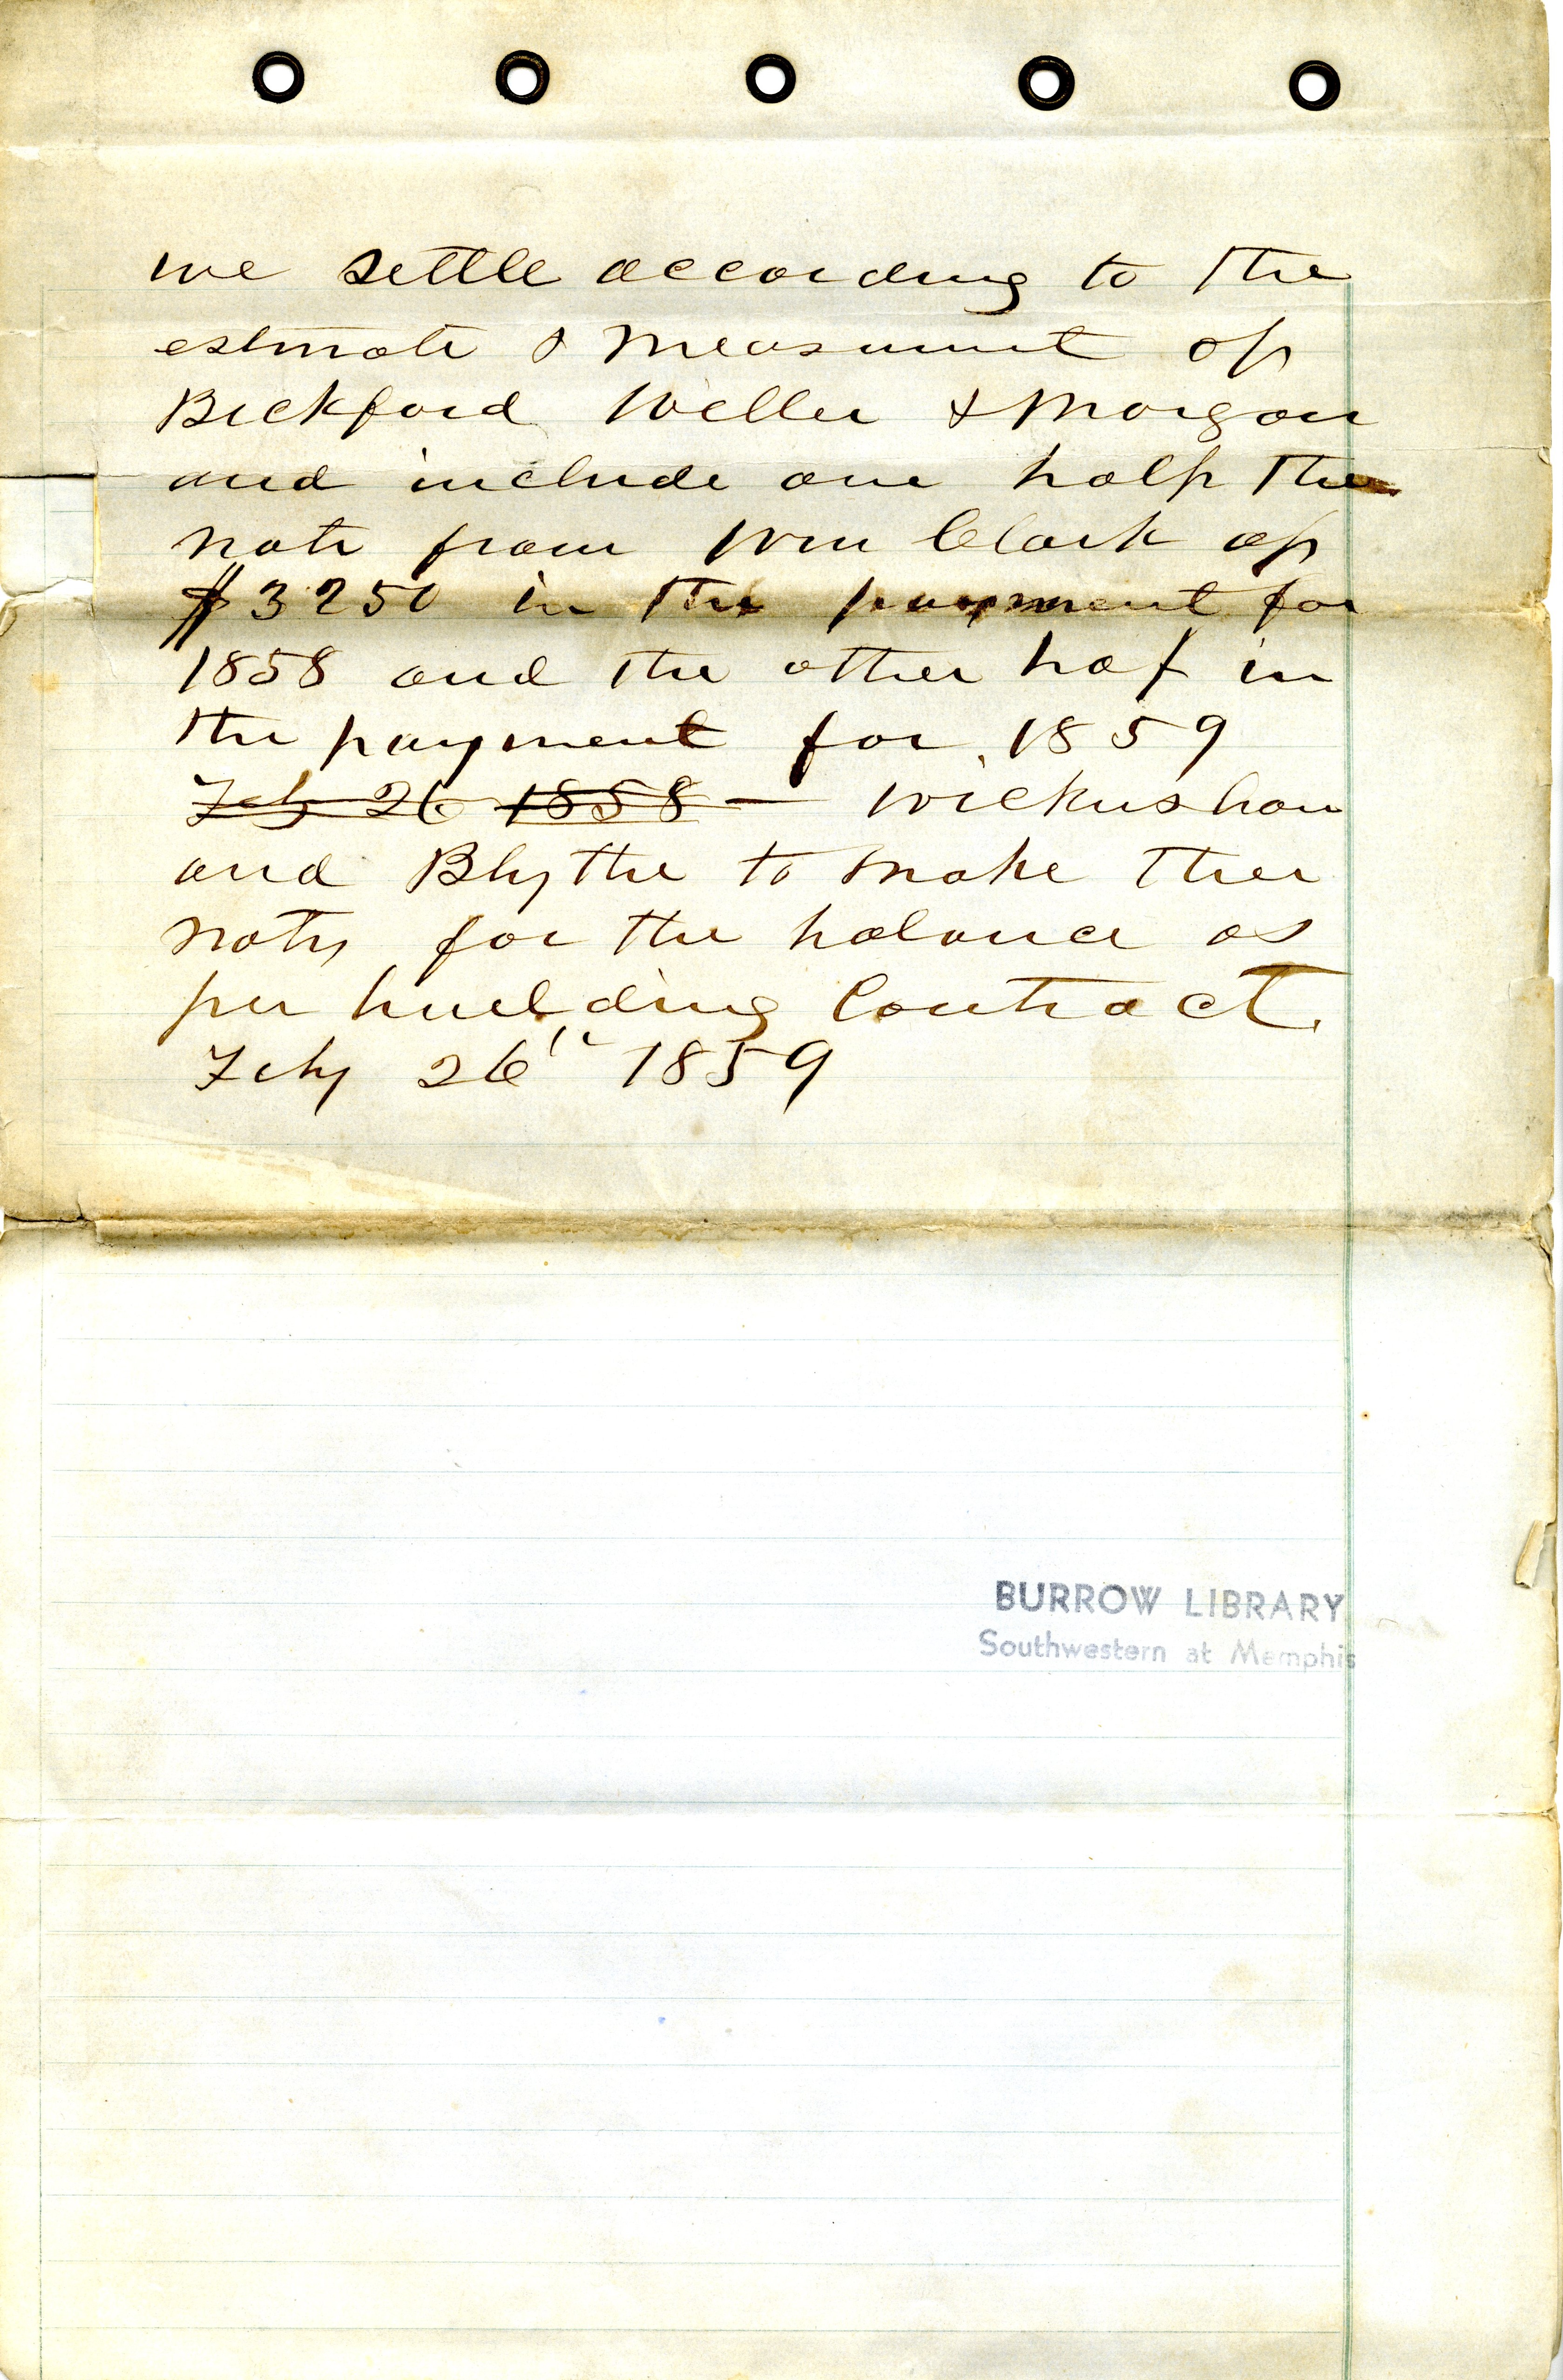 we settle according to the
estmate & Measument of
Bickford Weller & Morgan
and include one half the
note from Wm Clark of
$3250 in the payment for
1858 and the other haf in
the payment for 1859
Feby 26 1858 — Wickersham
and Blythe to make ther
notes for the balance as
per building Contract.
Feby 26" 1859
BURROW LIBRARY
Southwestern at Memphis